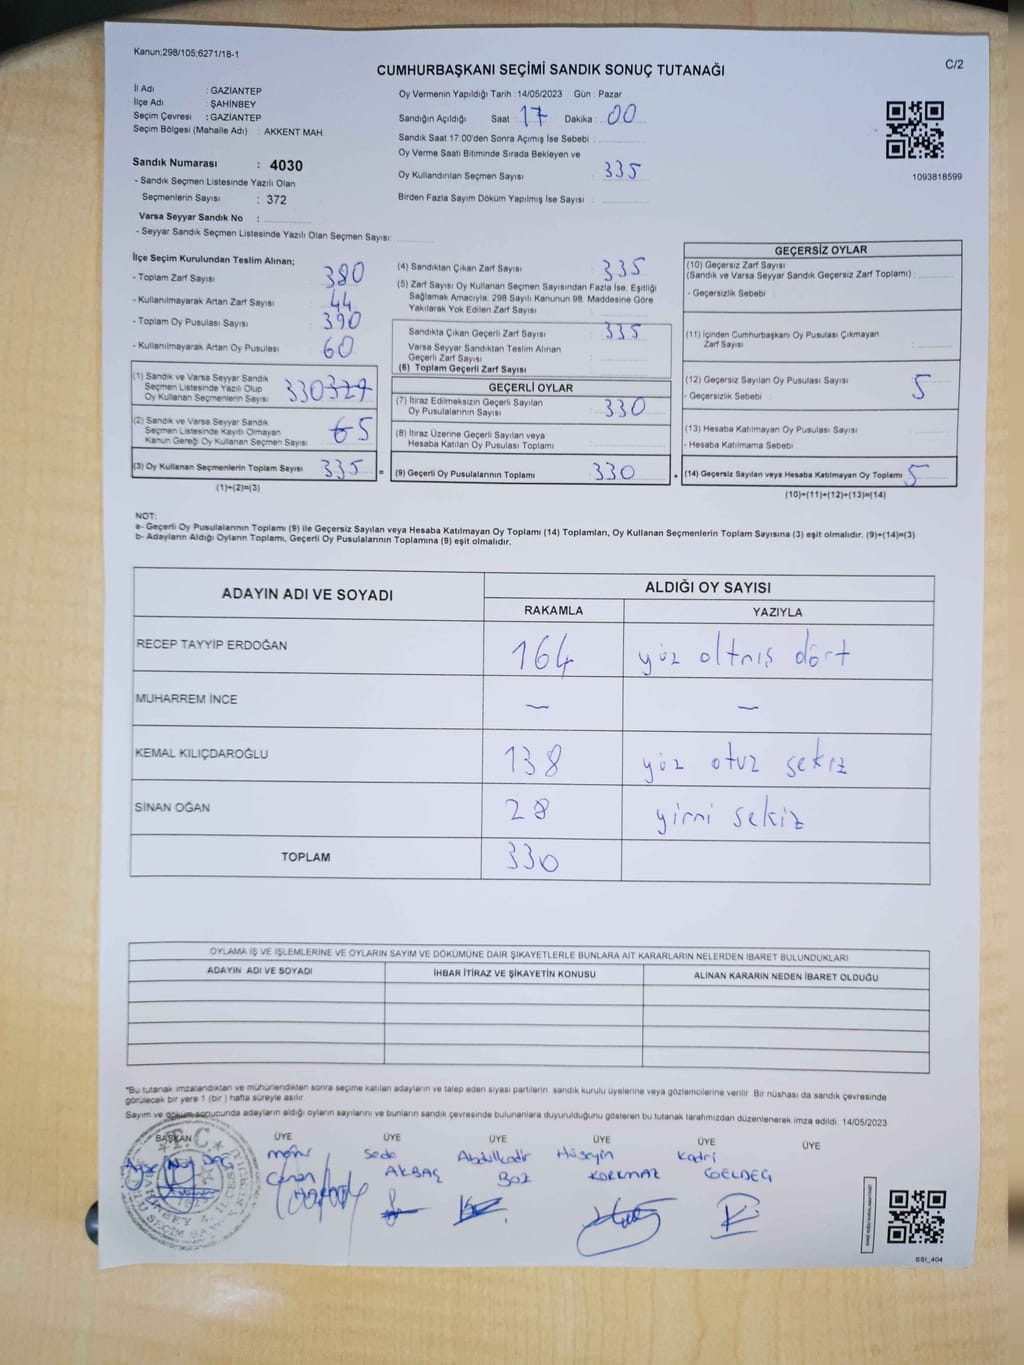 Kanun;298/105;6271/18-1
C/2
CUMHURBAŞKANI SEÇİMİ SANDIK SONUÇ TUTANAĞI
İl Adı : GAZİANTEP
İlçe Adı : ŞAHİNBEY
Seçim Çevresi : GAZİANTEP
Seçim Bölgesi (Mahalle Adı) : AKKENT MAH.
Sandık Numarası : 4030
- Sandık Seçmen Listesinde Yazılı Olan
Seçmenlerin Sayısı : 372
Varsa Seyyar Sandık No :
- Seyyar Sandık Seçmen Listesinde Yazılı Olan Seçmen Sayısı:
Oy Vermenin Yapıldığı Tarih : 14/05/2023 Gün : Pazar
Sandığın Açıldığı Saat : 17 Dakika : 00
Sandık Saat 17:00'den Sonra Açımış İse Sebebi :
Oy Verme Saati Bitiminde Sırada Bekleyen ve
Oy Kullandırılan Seçmen Sayısı : 335
Birden Fazla Sayım Döküm Yapılmış İse Sayısı :
1093818599
İlçe Seçim Kurulundan Teslim Alınan;
- Toplam Zarf Sayısı : 380
- Kullanılmayarak Artan Zarf Sayısı : 44
- Toplam Oy Pusulası Sayısı : 390
- Kullanılmayarak Artan Oy Pusulası : 60
(1) Sandık ve Varsa Seyyar Sandık
Seçmen Listesinde Yazılı Olup
Oy Kullanan Seçmenlerin Sayısı : 330 329
(2) Sandık ve Varsa Seyyar Sandık
Seçmen Listesinde Kayıtlı Olmayan
Kanun Gereği Oy Kullanan Seçmen Sayısı : 6 5
(3) Oy Kullanan Seçmenlerin Toplam Sayısı : 335 =
(1)+(2)=(3)
(4) Sandıktan Çıkan Zarf Sayısı : 335
(5) Zarf Sayısı Oy Kullanan Seçmen Sayısından Fazla İse, Eşitliği
Sağlamak Amacıyla, 298 Sayılı Kanunun 98. Maddesine Göre
Yakılarak Yok Edilen Zarf Sayısı :
Sandıkta Çıkan Geçerli Zarf Sayısı : 335
Varsa Seyyar Sandıktan Teslim Alınan
Geçerli Zarf Sayısı :
(6) Toplam Geçerli Zarf Sayısı :
GEÇERLİ OYLAR
(7) İtiraz Edilmeksizin Geçerli Sayılan
Oy Pusulalarının Sayısı : 330
(8) İtiraz Üzerine Geçerli Sayılan veya
Hesaba Katılan Oy Pusulası Toplamı :
(9) Geçerli Oy Pusulalarının Toplamı : 330 +
GEÇERSİZ OYLAR
(10) Geçersiz Zarf Sayısı
(Sandık ve Varsa Seyyar Sandık Geçersiz Zarf Toplamı) :
- Geçersizlik Sebebi :
(11) İçinden Cumhurbaşkanı Oy Pusulası Çıkmayan
Zarf Sayısı :
(12) Geçersiz Sayılan Oy Pusulası Sayısı : 5
- Geçersizlik Sebebi :
(13) Hesaba Katılmayan Oy Pusulası Sayısı :
- Hesaba Katılmama Sebebi :
(14) Geçersiz Sayılan veya Hesaba Katılmayan Oy Toplamı : 5
(10)+(11)+(12)+(13)=(14)
NOT:
a- Geçerli Oy Pusulalarının Toplamı (9) ile Geçersiz Sayılan veya Hesaba Katılmayan Oy Toplamı (14) Toplamları, Oy Kullanan Seçmenlerin Toplam Sayısına (3) eşit olmalıdır. (9)+(14)=(3)
b- Adayların Aldığı Oyların Toplamı, Geçerli Oy Pusulalarının Toplamına (9) eşit olmalıdır.
ADAYIN ADI VE SOYADI
ALDIĞI OY SAYISI
RAKAMLA YAZIYLA
RECEP TAYYİP ERDOĞAN 164 yüz altmış dört
MUHARREM İNCE – –
KEMAL KILIÇDAROĞLU 138 yüz otuz sekiz
SİNAN OĞAN 28 yirmi sekiz
TOPLAM 330
OYLAMA İŞ VE İŞLEMLERİNE VE OYLARIN SAYIM VE DÖKÜMÜNE DAİR ŞİKAYETLERLE BUNLARA AİT KARARLARIN NELERDEN İBARET BULUNDUKLARI
ADAYIN ADI VE SOYADI İHBAR İTİRAZ VE ŞİKAYETİN KONUSU ALINAN KARARIN NEDEN İBARET OLDUĞU
*Bu tutanak imzalandıktan ve mühürlendikten sonra seçime katılan adayların ve talep eden siyasi partilerin sandık kurulu üyelerine veya gözlemcilerine verilir. Bir nüshası da sandık çevresinde
görülecek bir yere 1 (bir) hafta süreyle asılır.
Sayım ve döküm sonucunda adayların aldığı oyların sayılarını ve bunların sandık çevresinde bulunanlara duyurulduğunu gösteren bu tutanak tarafımızdan düzenlenerek imza edildi. 14/05/2023
BAŞKAN ÜYE ÜYE ÜYE ÜYE ÜYE ÜYE
Seda Abdulkadir Hüseyin Kadri
AKBAŞ BOZ KORKMAZ GELDEÇ
T.C.
SSI_404